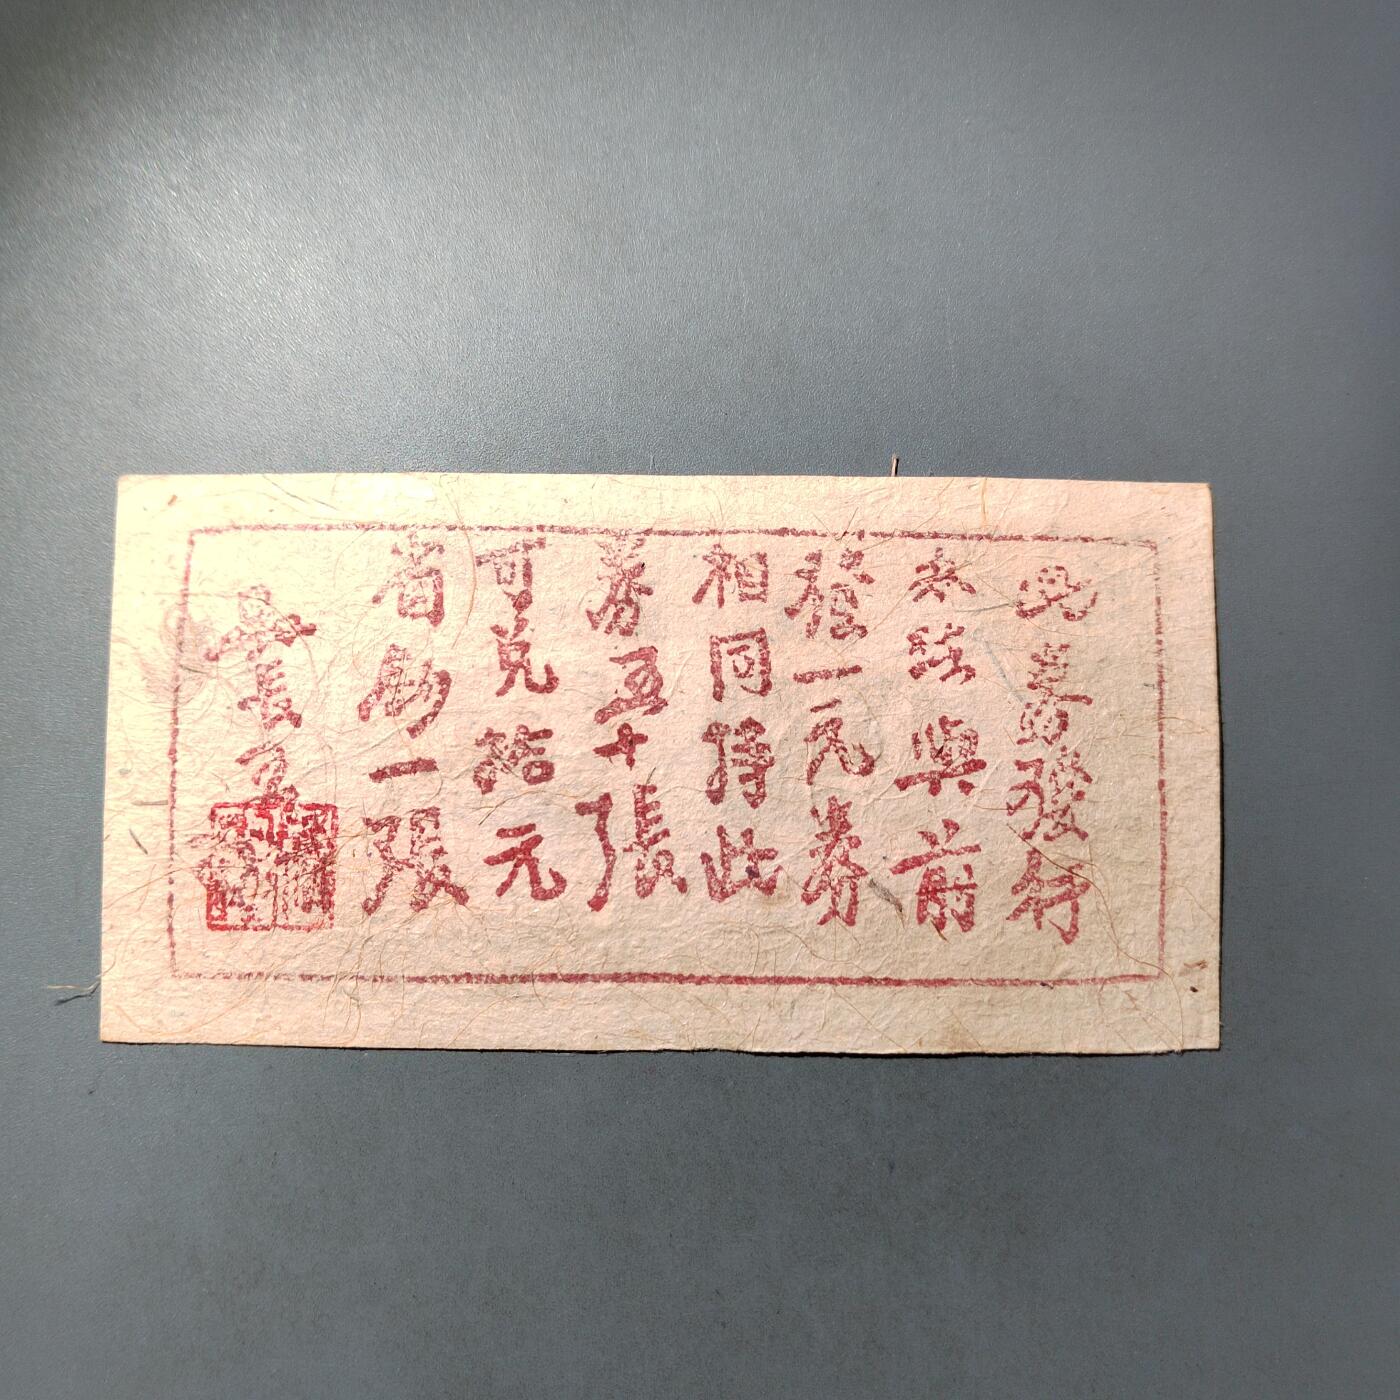 此券發行
办法與前
發一元券
相同持此
券五十張
可兑拾元
省鈔一張